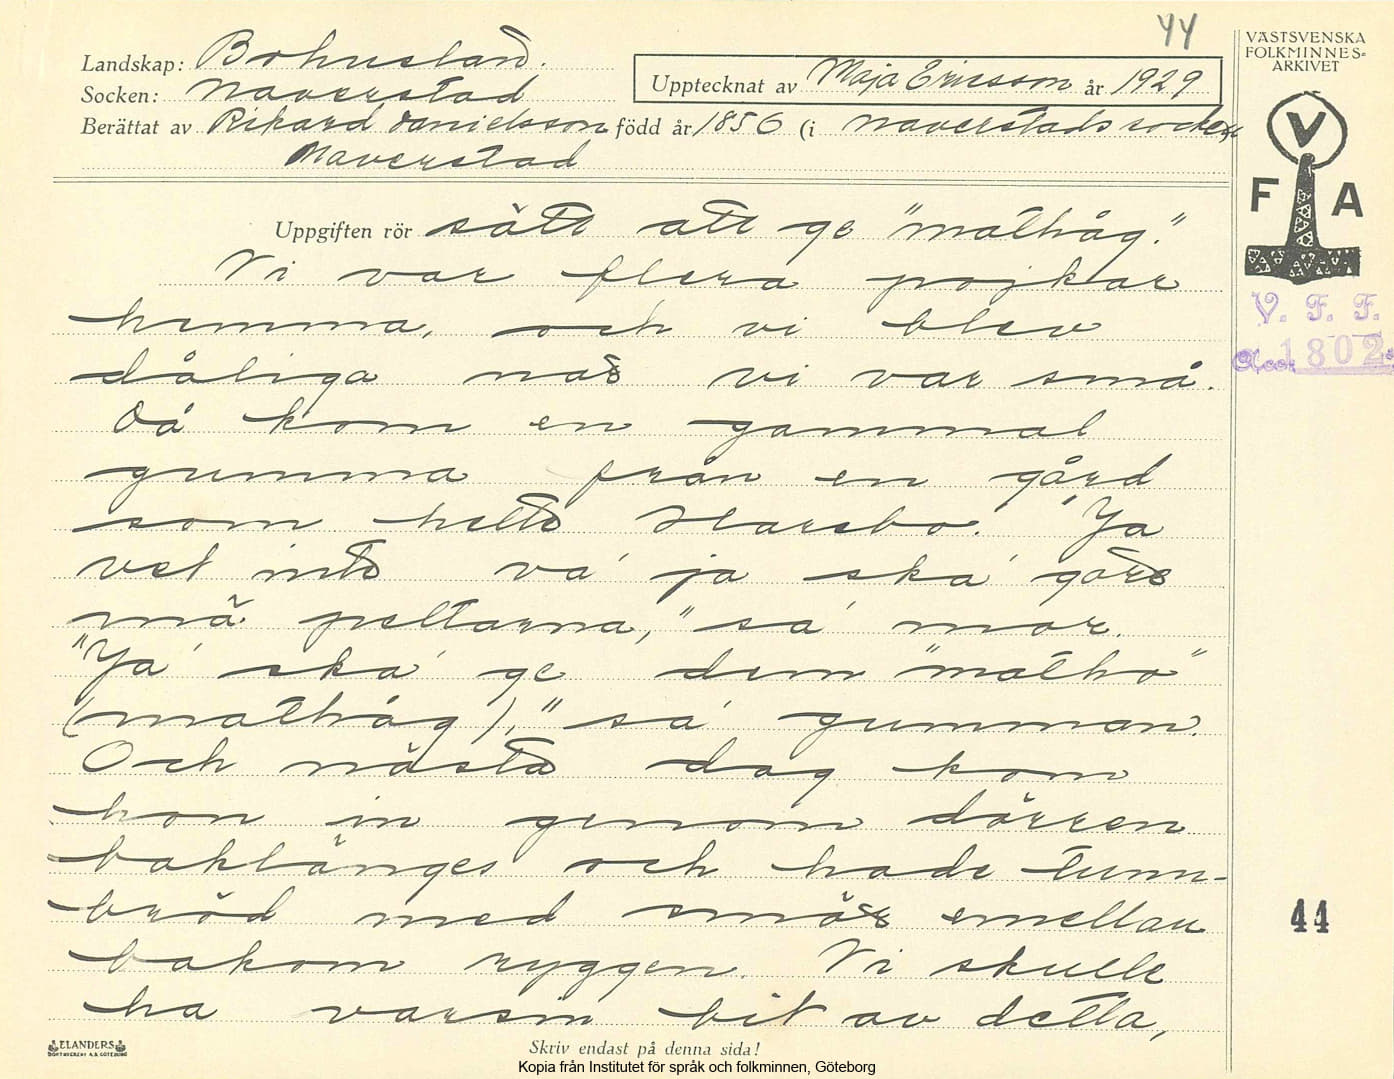 44
Landskap: Bohuslän.
Socken: Naverstad
Upptecknat av Maja Ericsson år 1929
Berättat av Rikard Danielsson född år 1856 (i Naverstads socken
Naverstad
VÄSTSVENSKA
FOLKMINNES-
ARKIVET
V
F A
V. F. F.
Acc. 1802
Uppgiften rör sätt att ge "mathåg."
Vi var flera pojkar
hemma, och vi blev
dåliga när vi var små.
Då kom en gammal
gumma från en gård
som hette Harsbo. "Ja
vet inte va' ja ska' göre
mä peltarna," sa' mor.
"Ja' ska' ge dem "mathö"
(mathåg)," sa' gumman.
Och nästa dag kom
hon in genom dörren
baklänges och hade tunn-
bröd med smör emellan
bakom ryggen. Vi skulle
ha varsin bit av detta,
44
ELANDERS
BOKTRYCKERI A.B. GÖTEBORG
Skriv endast på denna sida!
Kopia från Institutet för språk och folkminnen, Göteborg